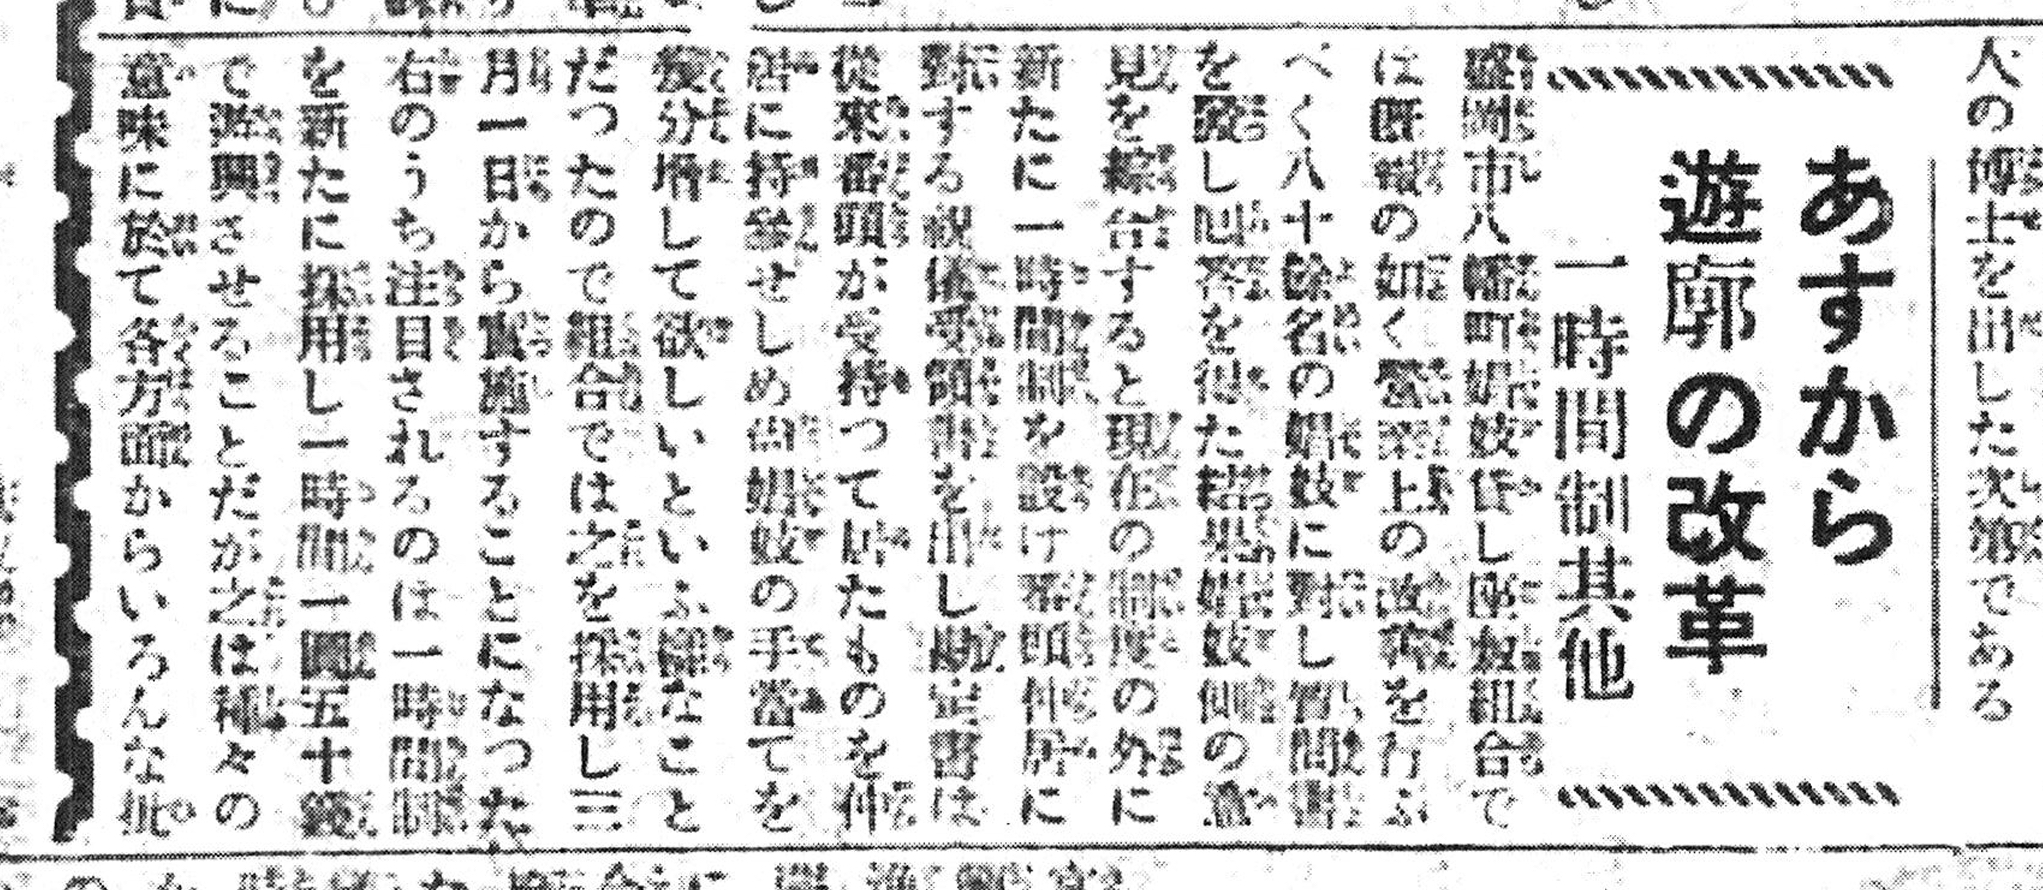 人の博士を出した次第である
あすから
遊廓の改革
一時間制其他
盛岡市八幡町娼妓貸し座敷組合で
は既報の如く営業上の改革を行ふ
べく八十餘名の娼妓に對し質問書
を發し回答を得た結果娼妓側の意
見を綜合すると現在の制度の外に
新たに一時間制を設け番頭仲居に
對する祝儀受領書を出し勘定書は
從來番頭が受持つて居たものを仲
居に持參せしめ尚娼妓の手當てを
幾分増して欲しいといふ樣なこと
だつたので組合では之を採用し三
月一日から實施することになつた
右のうち注目されるのは一時間制
を新たに採用し一時間一圓五十錢
で遊興させることだが之は種々の
意味に於て各方面からいろんな